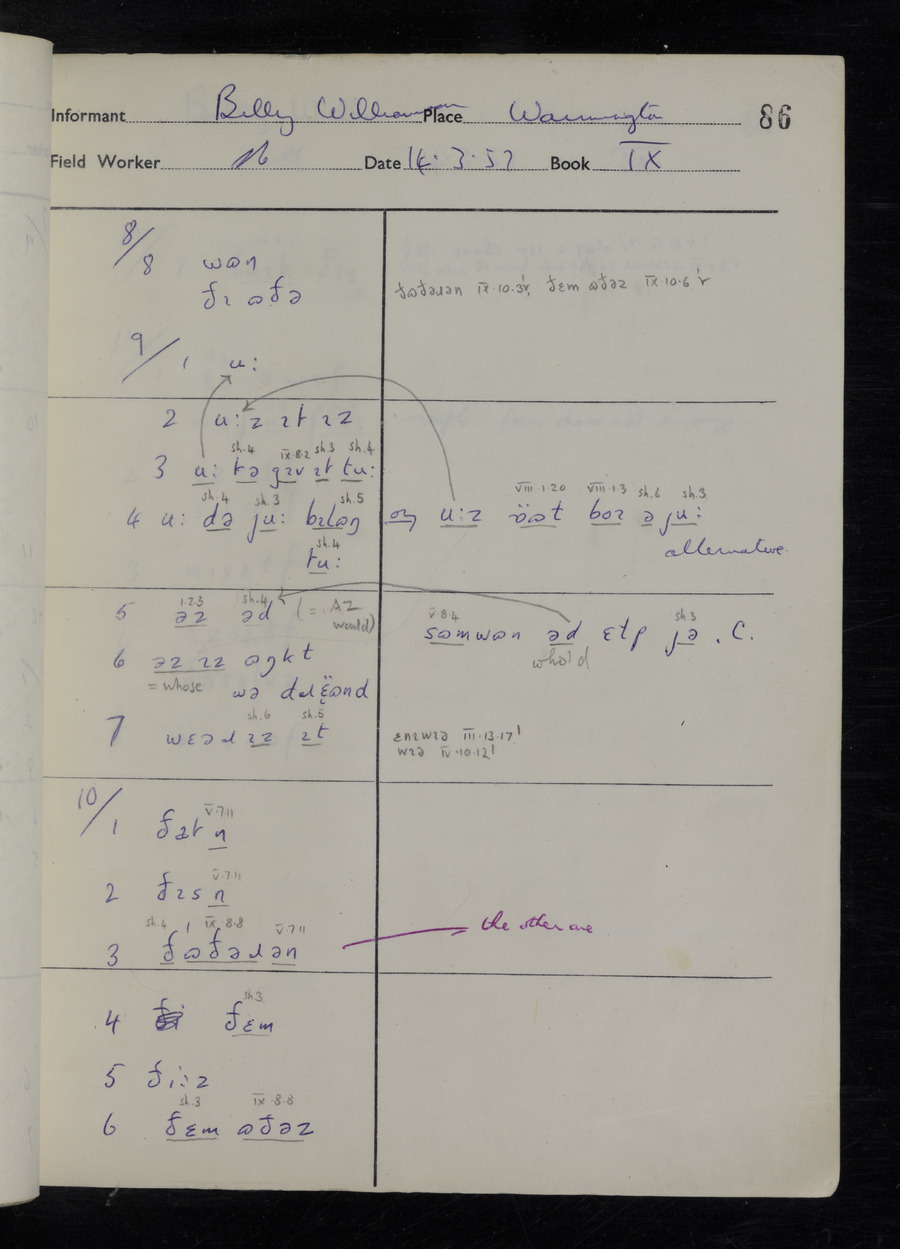 Informant Billy Williamson Place Warmington 86
Field Worker Date 14.3.57 Book IX
8/8 wɷn
ðɪ ɷðə
ðɷðəɹən IX.10.3r, ðɛm ɷðəz IX.10.6 r
9/1 u:
2 u:z ɪt ɪz
sh.4 IX.8.2 sh3 sh.4
3 u: tə gɪv ɪt tu:
sh.4 sh.3 sh.5 VIII.1.20 VIII.1.3 sh.6 sh.3
4 u: də ju: bɪlɒŋ or u:z bɒɪ ə ju:
sh.4
tu:
alternative.
1.2.3 sh.4
5 əz əd (= AZ would)
V 8.4 sh.3
sɷmwɷn əd ɛlp jə . C.
who'd
6 əz ɪz ɷŋkt
= whose
wə
sh.6 sh.5
7 wɛəɹɪz ɪt
ɛnɪwɪə III.13.17'
wɪə IV.10.12'
10/1 ðat n
V.7.11
2 ðɪs n
V.7.11
sh.4 IX.8.8 V.7.11
3 ðɷðəɹən the other one
sh3
4 ðɛm
5 ði:z
sh.3 IX.8.8
6 ðɛm ɷðəz